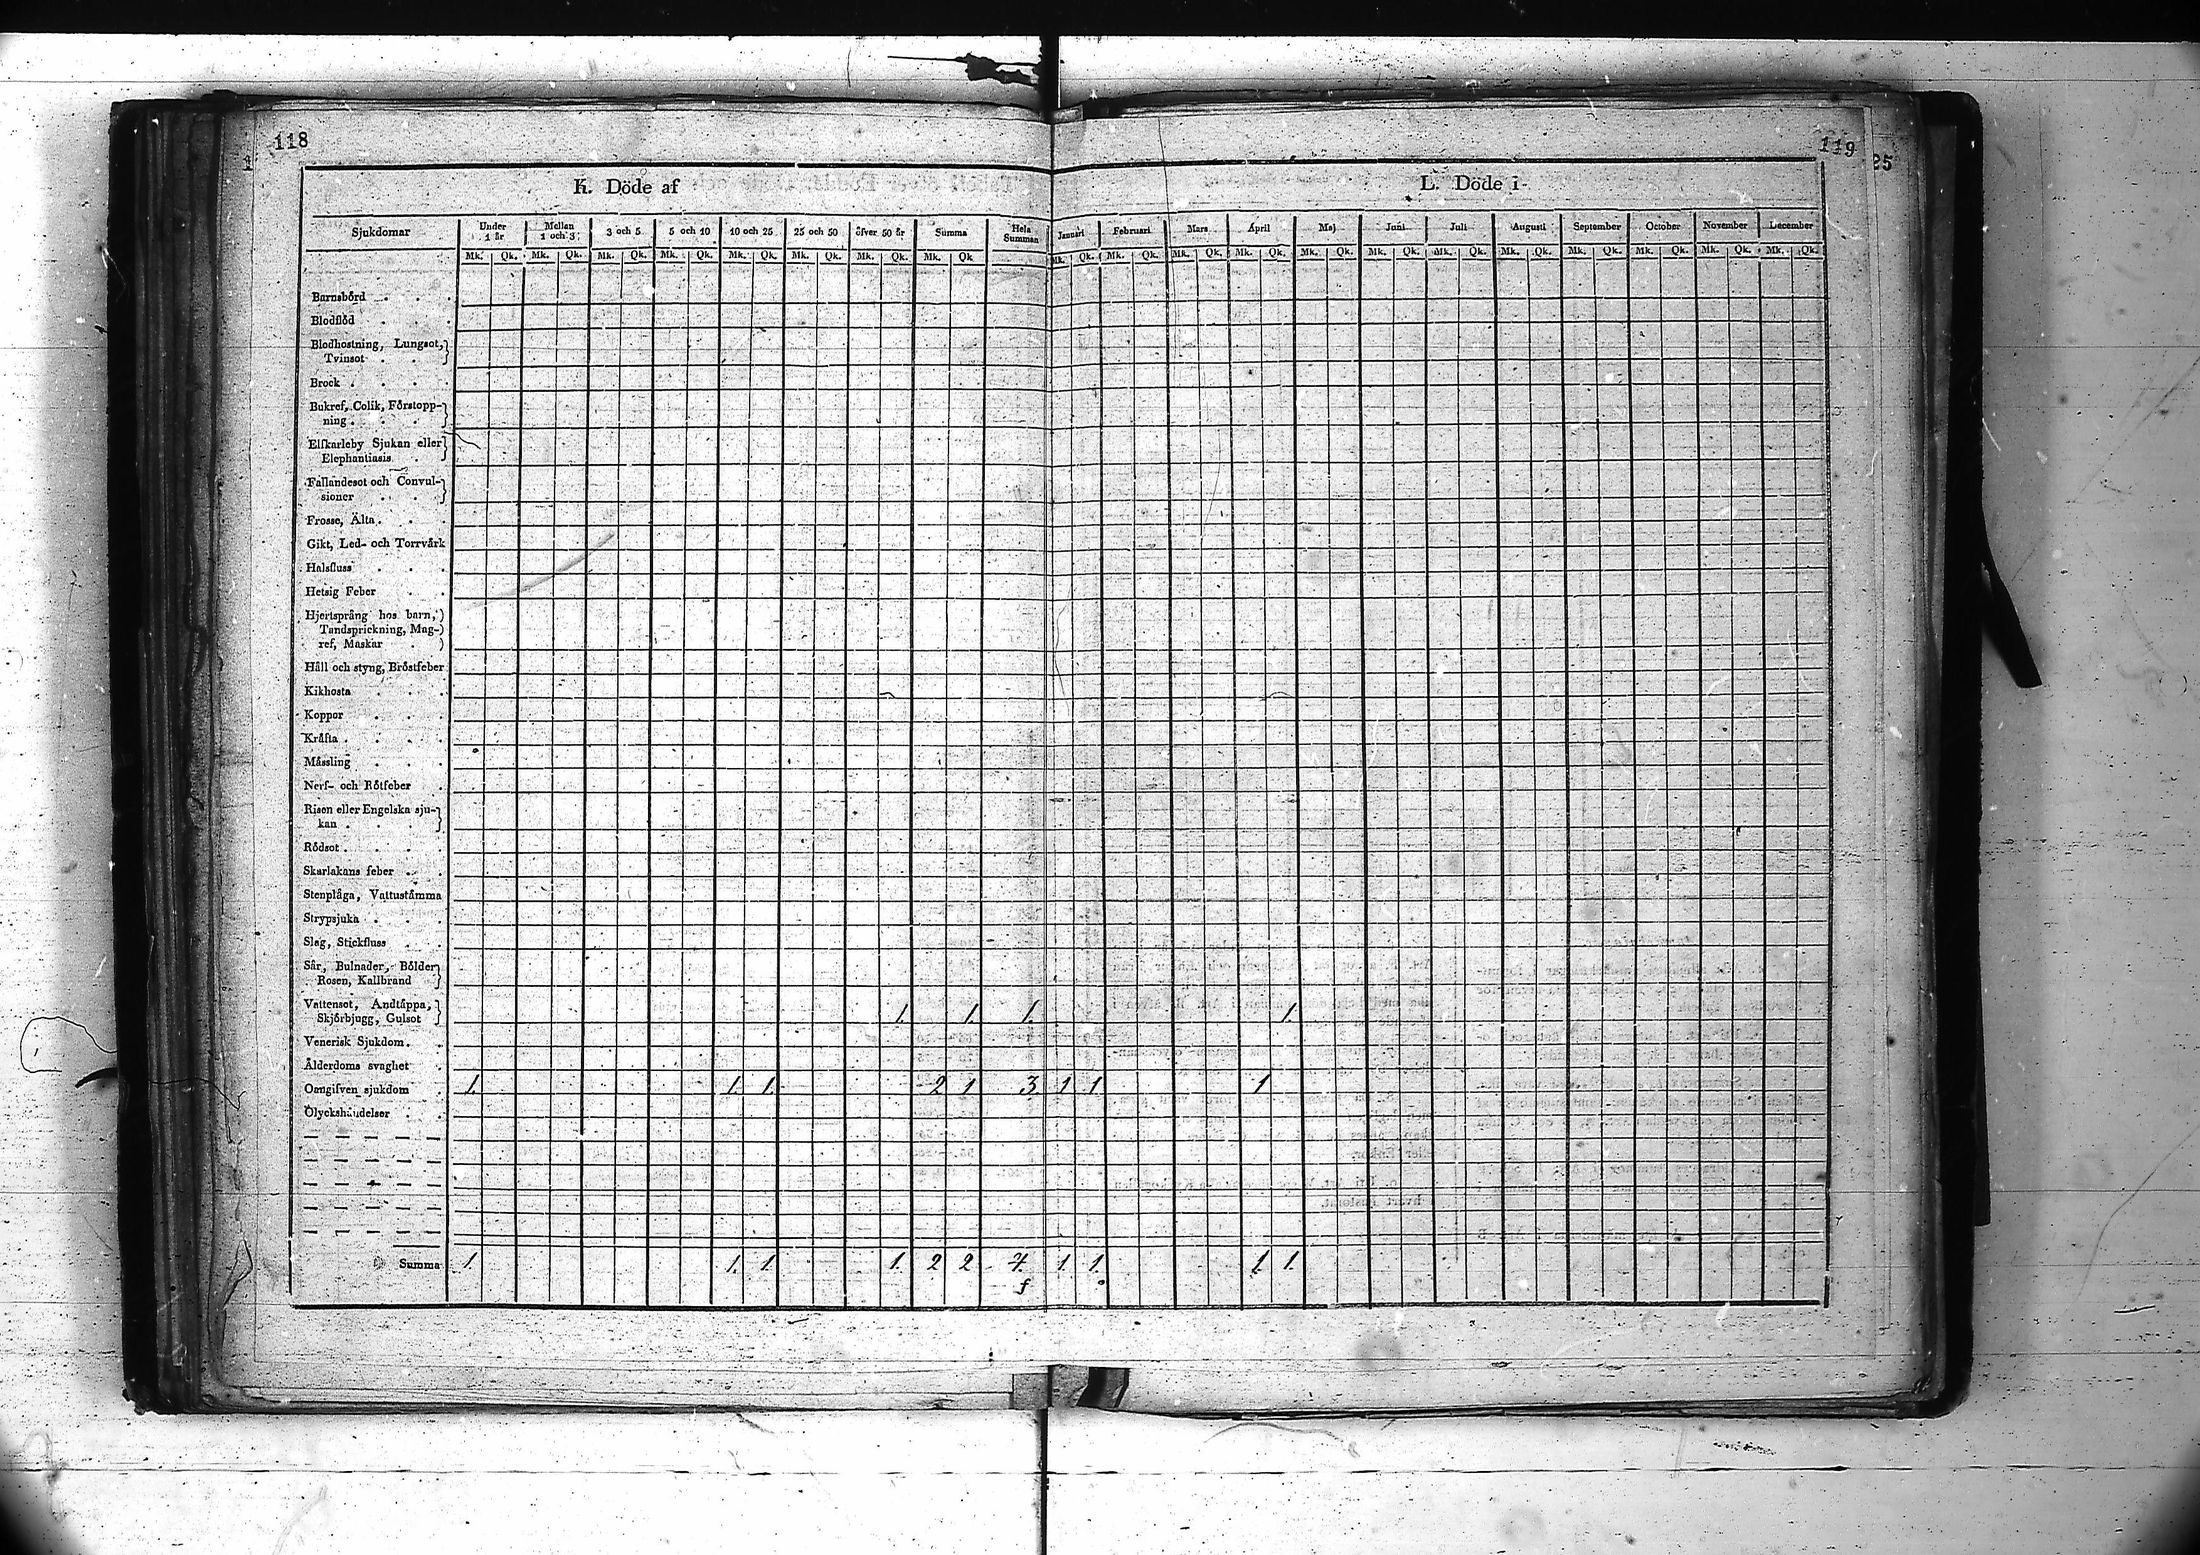 118
119
25
K. Döde af
L. Döde i
Sjukdomar
Under 1 år
Mellan 1 och 3
3 och 5
5 och 10
10 och 25
25 och 50
öfver 50 år
Summa
Hela Summan
Januari
Februari
Mars
April
Maj
Juni
Juli
Augusti
September
October
November
December
Mk. Qk. Mk. Qk. Mk. Qk. Mk. Qk. Mk. Qk. Mk. Qk. Mk. Qk. Mk. Qk Mk. Qk. Mk. Qk. Mk. Qk. Mk. Qk. Mk. Qk. Mk. Qk. Mk. Qk. Mk. Qk. Mk. Qk. Mk. Qk. Mk. Qk. Mk. Qk.
Barnsbörd . . .
Blodflöd . . .
Blodhostning, Lungsot,
Tvinsot . .
Brock . . . .
Bukref, Colik, Förstopp-
ning . . .
Elfkarleby Sjukan eller
Elephantiasis .
Fallandesot och Convul-
sioner . .
Frosse, Älta . . .
Gikt, Led- och Torrvärk
Halsfluss . . .
Hetsig Feber . .
Hjertsprång hos barn,
Tandsprickning, Mag-
ref, Maskar .
Håll och styng, Bröstfeber
Kikhosta . . .
Koppor . . .
Kräfta . . . .
Mässling . . .
Nerf- och Rötfeber .
Risen eller Engelska sju-
kan . . .
Rödsot . . . .
Skarlakans feber . .
Stenplåga, Vattustämma
Strypsjuka . . .
Slag, Stickfluss . .
Sår, Bulnader, Bölder
Rosen, Kallbrand
Vattensot, Andtäppa,
Skjörbjugg, Gulsot 1. 1. 1. 1.
Venerisk Sjukdom . .
Ålderdoms svaghet .
Oangifven sjukdom 1. 1. 1. 2 1 3. 1 1 1
Olyckshändelser . .
Summa 1. 1. 1. 1. 2 2 4. 1 1. 1. 1.